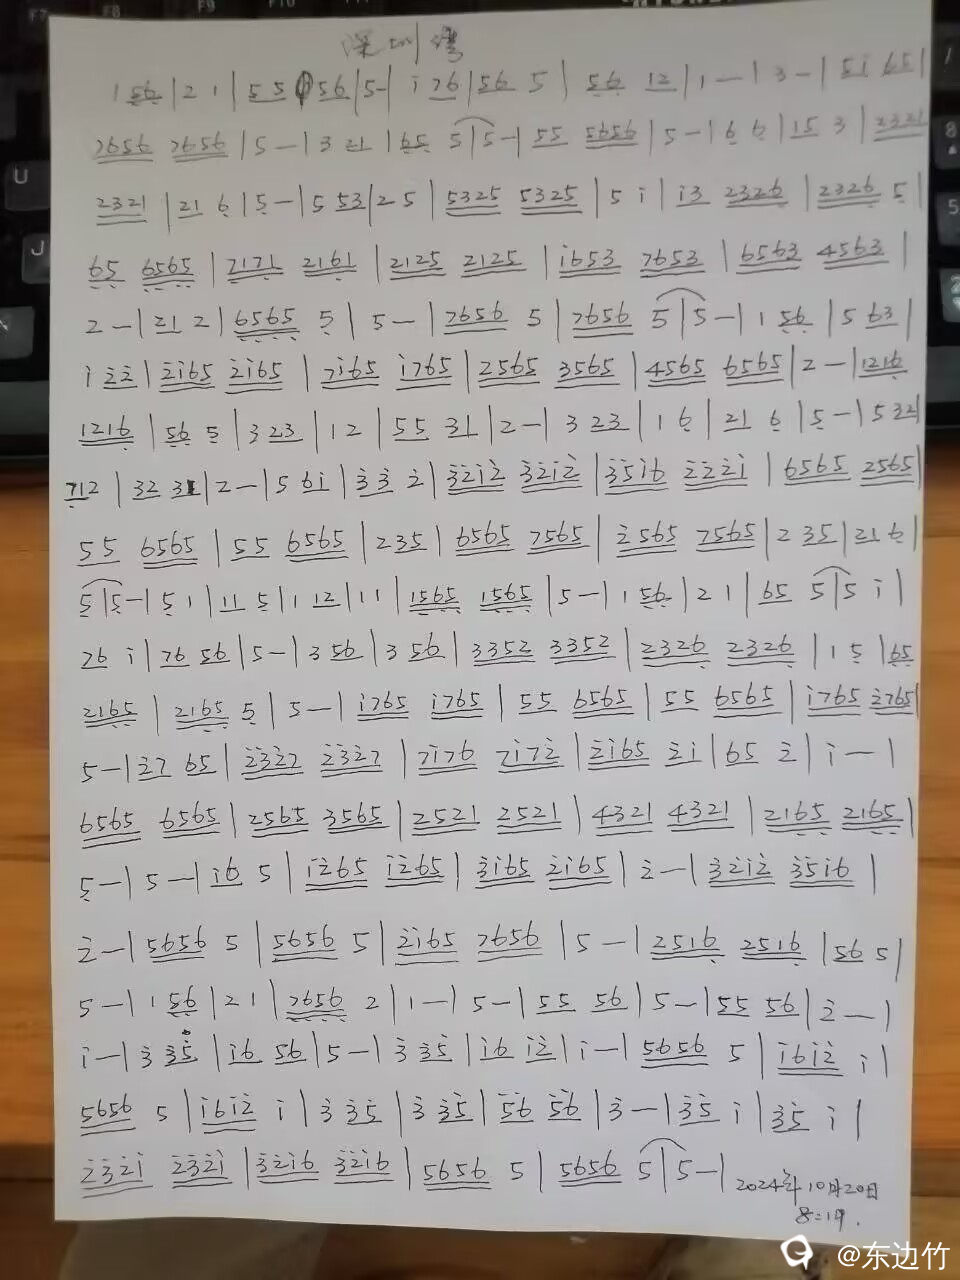 深圳湾
1 56 | 2 1 | 5 5 0 56 | 5 - | i 76 | 56 5 | 56 12 | 1 — | 3 - | 5i 65 |
7656 7656 | 5 — | 3 21 | 65 5 | 5 — | 55 5656 | 5 - | 6 6 | 15 3 | 2321
2321 | 21 6 | 5 - | 5 53 | 2 5 | 5325 5325 | 5 i | i3 2326 | 2326 5 |
65 6565 | 2171 2161 | 2125 2125 | i653 7653 | 6563 4563 |
2 — | 21 2 | 6565 5 | 5 — | 7656 5 | 7656 5 | 5 — | 1 56 | 5 63 |
i 22 | 2i65 2i65 | 7i65 i765 | 2565 3565 | 4565 6565 | 2 — | 1216
1216 | 56 5 | 3 23 | 1 2 | 55 31 | 2 — | 3 23 | 1 6 | 21 6 | 5 — | 5 32 |
712 | 32 31 | 2 — | 5 6i | 3 3 2 | 32i2 32i2 | 35i6 222i | 6565 2565 |
55 6565 | 55 6565 | 2 35 | 6565 7565 | 2565 7565 | 2 35 | 21 6 |
5 | 5 — | 5 1 | 11 5 | 1 12 | 1 1 | 1565 1565 | 5 — | 1 56 | 2 1 | 65 5 | 5 i |
76 i | 76 56 | 5 — | 3 56 | 3 56 | 3352 3352 | 2326 2326 | 1 5 | 65
2165 | 2165 5 | 5 — | i765 i765 | 55 6565 | 55 6565 | i765 2765 |
5 — | 27 65 | 2327 2327 | 7i76 7i72 | 2i65 2i | 65 2 | i — |
6565 6565 | 2565 3565 | 2521 2521 | 4321 4321 | 2165 2165 |
5 — | 5 — | i6 5 | i265 i265 | 3i65 2i65 | 2 — | 32i2 35i6 |
2 — | 5656 5 | 5656 5 | 2i65 7656 | 5 — | 2516 2516 | 56 5 |
5 — | 1 56 | 2 1 | 7656 2 | 1 — | 5 — | 55 56 | 5 — | 55 56 | 2 — |
i — | 3 35 | i6 56 | 5 — | 3 35 | i6 i2 | i — | 5656 5 | i6i2 i |
5656 5 | i6i2 i | 3 35 | 3 35 | 56 56 | 3 — | 35 i | 35 i |
232i 232i | 32i6 32i6 | 5656 5 | 5656 5 | 5 — | 2024年10月20日
8:19.
@东边竹